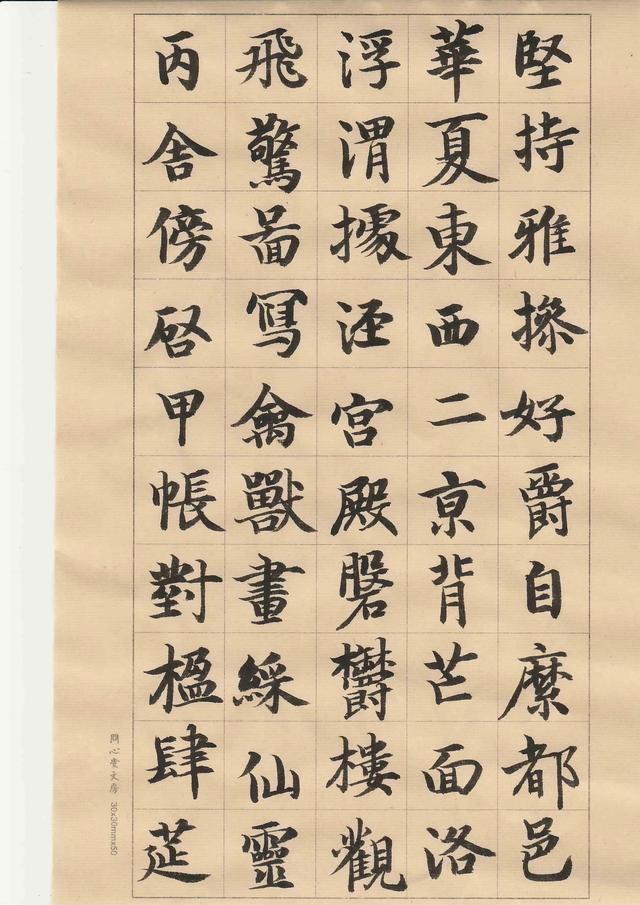 堅持雅操好爵自縻都邑
華夏東西二亰背芒面洛
浮渭據涇宮殿磐欝樓觀
飛驚啚寫禽獸畫綵仙靈
丙舍傍啓甲帳對楹肆筵
心堂文房 30x30mmx50